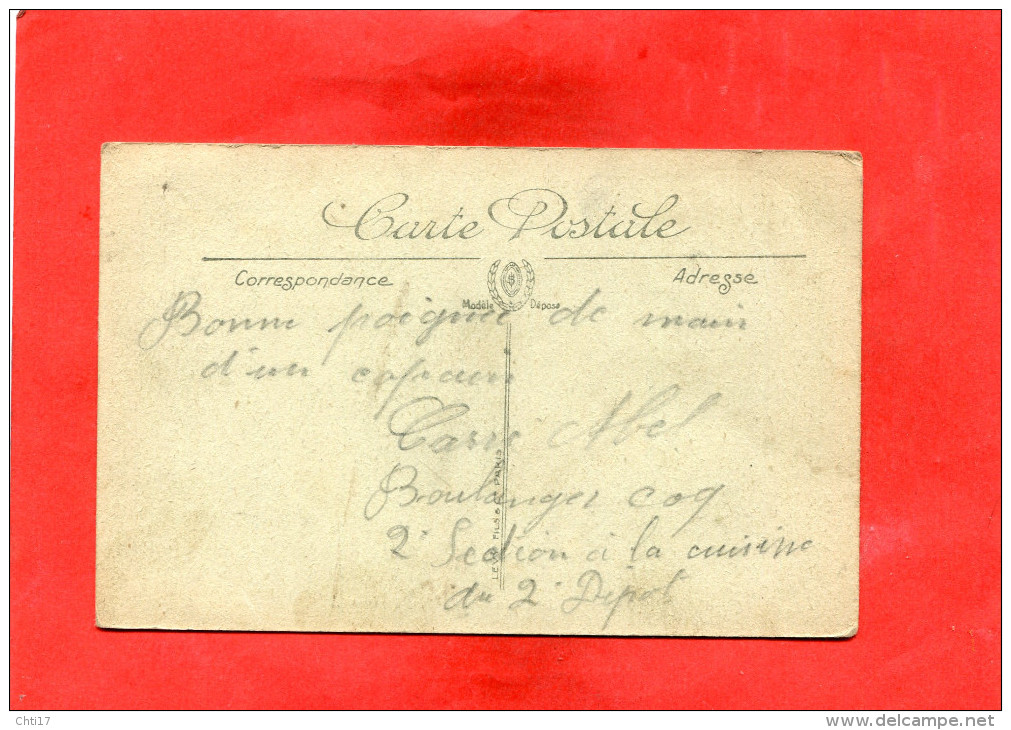 Carte Postale
Correspondance
Adresse
Modèle Déposé
Bonne poignée de main
d'un copain
Carre Abel
Boulanger coq
2e Section à la cuisine
du 2e Dépot
LEVY FILS & Cie PARIS
Chti17
www.delcampe.net